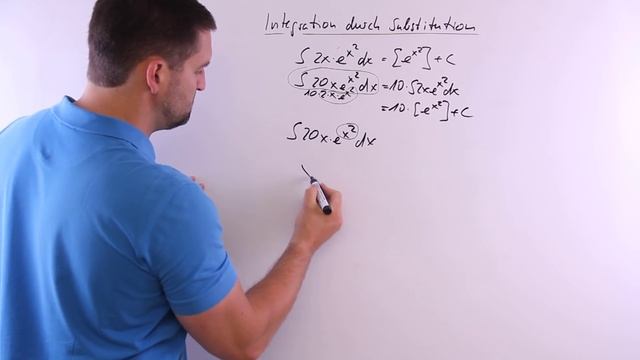 Integration durch Substitution
∫ 2x · e^x² dx = [e^x²] + C
∫ 20x · e^x² dx = 10 · ∫ 2x e^x² dx
10 · 2 · x · e^x²
= 10 · [e^x²] + C
∫ 20x · e^x² dx